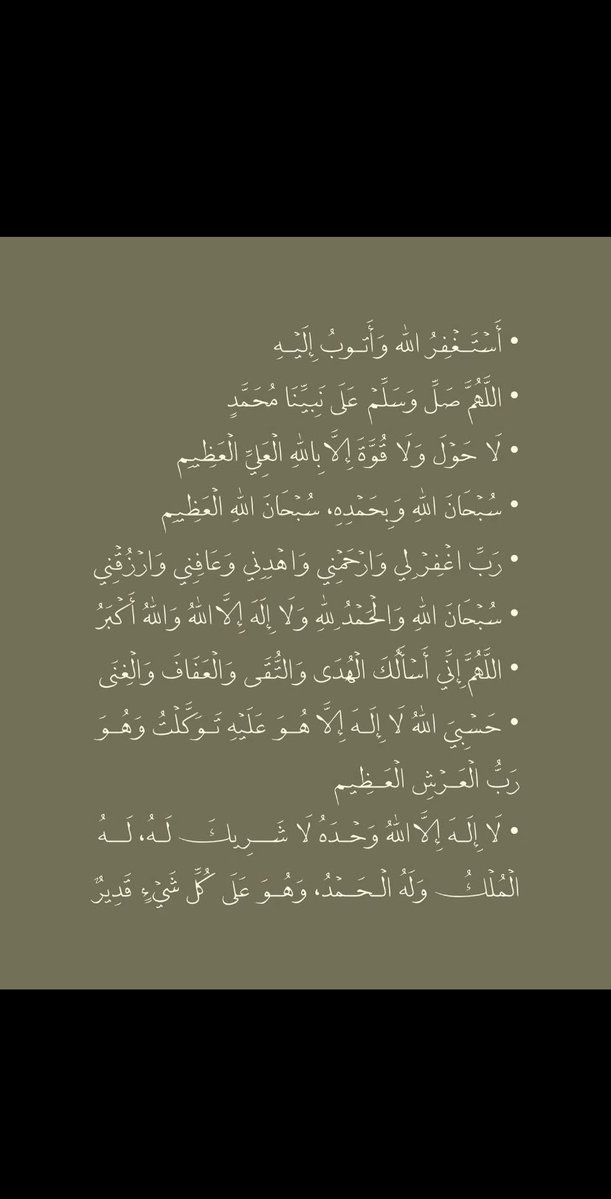 • أَسْتَــغْفِرُ الله وَأَتــوبُ إِلَيْــهِ
• اللَّهُمَّ صَلِّ وَسَلِّمْ عَلَى نَبِيِّنَا مُحَمَّدٍ
• لَا حَوْلَ وَلَا قُوَّةَ إِلَّا بِاللهِ الْعَلِيِّ الْعَظِيمِ
• سُبْحَانَ اللهِ وَبِحَمْدِهِ، سُبْحَانَ اللهِ الْعَظِيمِ
• رَبِّ اغْفِرْ لِي وَارْحَمْنِي وَاهْدِنِي وَعَافِنِي وَارْزُقْنِي
• سُبْحَانَ اللهِ وَالْحَمْدُ لِلهِ وَلَا إِلَهَ إِلَّا اللهُ وَاللهُ أَكْبَرُ
• اللَّهُمَّ إِنِّي أَسْأَلُكَ الْهُدَى وَالتُّقَى وَالْعَفَافَ وَالْغِنَى
• حَسْبِيَ اللهُ لَا إِلَــهَ إِلَّا هُــوَ عَلَيْهِ تَــوَكَّلْتُ وَهُــوَ
رَبُّ الْعَــرْشِ الْعَــظِيمِ
• لَا إِلَــهَ إِلَّا اللهُ وَحْــدَهُ لَا شَــــرِيكَ لَــهُ، لَــــهُ
الْمُلْكُ وَلَهُ الْــحَــمْدُ، وَهُــوَ عَلَى كُلِّ شَيْءٍ قَدِيرٌ